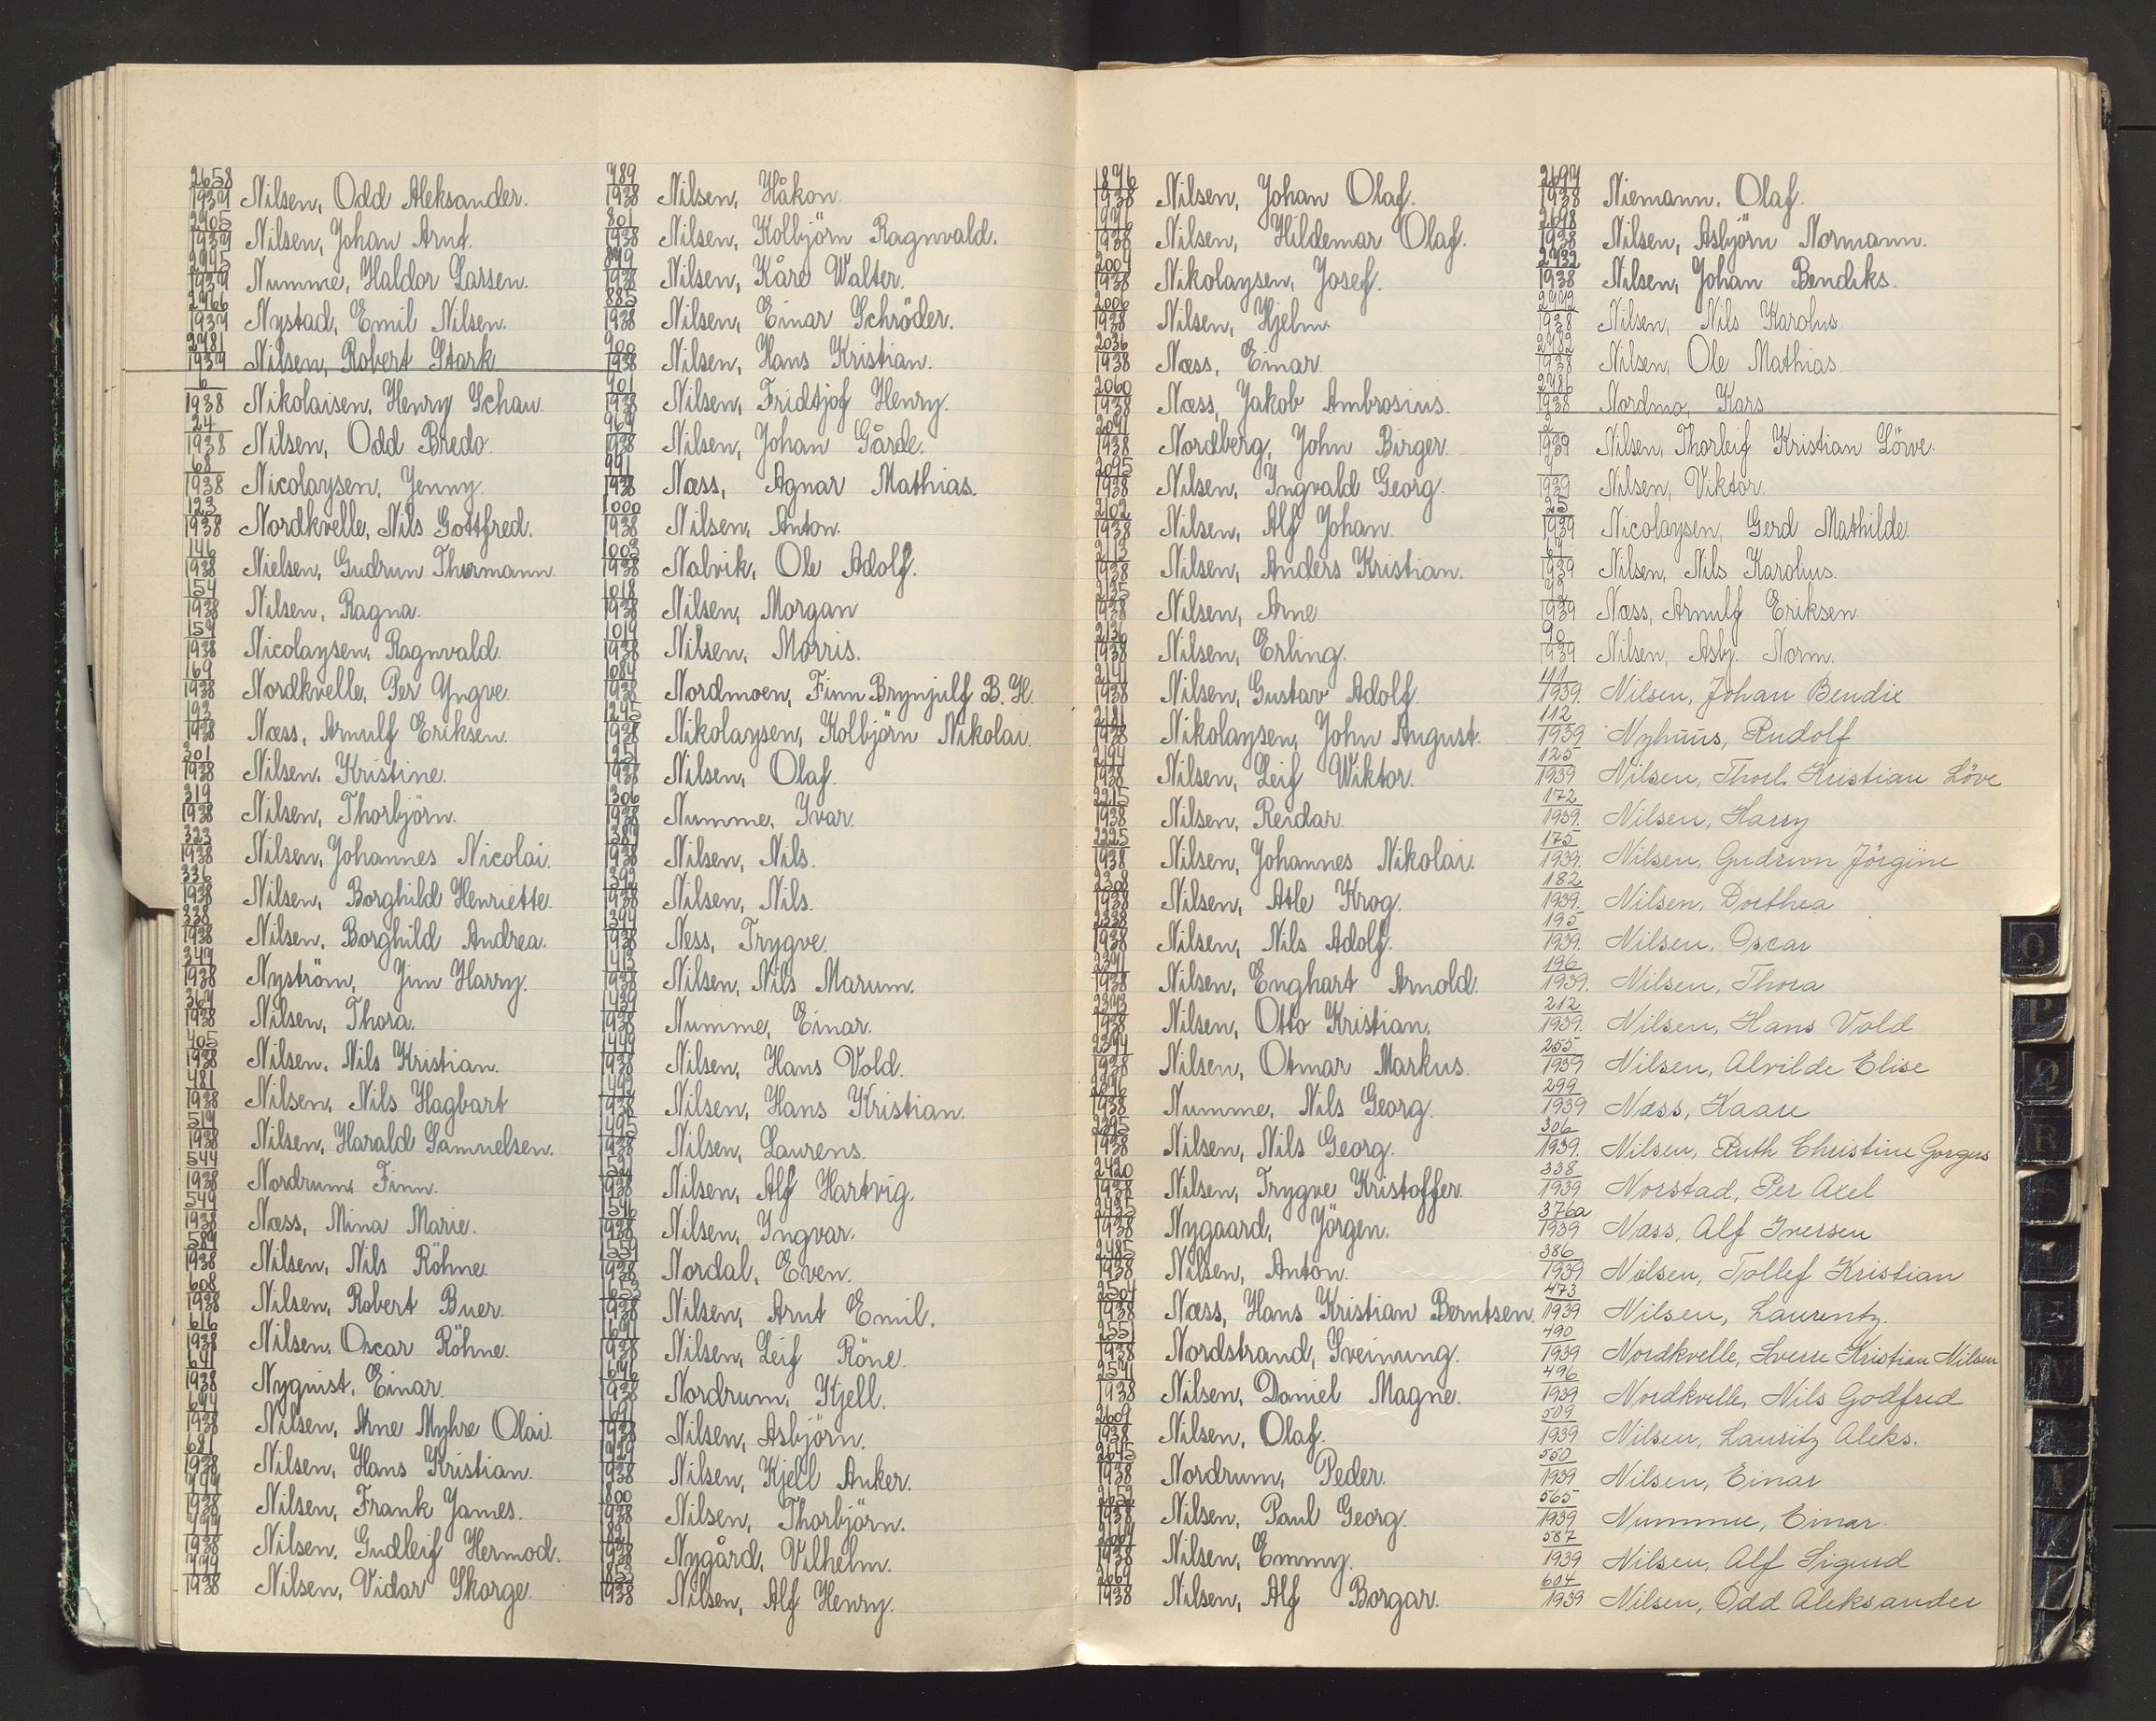 2658/1937 Nilsen, Odd Aleksander.
2705/1937 Nilsen, Johan Arnt.
2745/1937 Numme, Haldor Lassen.
2766/1937 Nystad, Emil Nilsen.
2781/1937 Nilsen, Robert Stark
6/1938 Nikolaisen, Henry Schau
24/1938 Nilsen, Odd Bredo.
68/1938 Nicolaysen, Jenny.
123/1938 Nordkvelle, Nils Gottfred.
146/1938 Nielsen, Gudrun Thurmann.
154/1938 Nilsen, Ragna.
157/1938 Nicolaysen, Ragnvald.
169/1938 Nordkvelle, Per Yngve.
193/1938 Næss, Arnulf Eriksen.
301/1938 Nilsen, Kristine.
319/1938 Nilsen, Thorbjörn.
323/1938 Nilsen, Johannes Nicolai.
336/1938 Nilsen, Borghild Henriette.
338/1938 Nilsen, Borghild Andrea.
347/1938 Nyström, Jim Harry.
367/1938 Nilsen, Thora.
405/1938 Nilsen, Nils Kristian.
481/1938 Nilsen, Nils Hagbart
517/1938 Nilsen, Harald Samuelsen.
544/1938 Nordrum, Finn.
549/1938 Næss, Mina Marie.
587/1938 Nilsen, Nils Röhne.
608/1938 Nilsen, Robert Buer.
616/1938 Nilsen, Oscar Röhne.
641/1938 Nyquist, Einar.
644/1938 Nilsen, Arne Myhre Olai.
681/1938 Nilsen, Hans Kristian.
1938 Nilsen, Frank James.
1938 Nilsen, Gudleif Hermod.
1938 Nilsen, Vidar Skorge.
789/1938 Nilsen, Håkon.
801/1938 Nilsen, Kolbjörn Ragnvald.
879/1938 Nilsen, Kåre Walter.
885/1938 Nilsen, Einar Schröder.
900/1938 Nilsen, Hans Kristian.
901/1938 Nilsen, Fridtjof Henry.
969/1938 Nilsen, Johan Gårde.
991/1938 Næss, Agnar Mathias.
1000/1938 Nilsen, Anton.
1003/1938 Nalvik, Ole Adolf.
1018/1938 Nilsen, Morgan
1019/1938 Nilsen, Morris.
1087/1938 Nordmoen, Finn Brynjulf B. H.
1245/1938 Nikolaysen, Kolbjörn Nikolai.
1251/1938 Nilsen, Olaf.
1306/1938 Numme, Ivar.
1387/1938 Nilsen, Nils.
1392/1938 Nilsen, Nils.
1397/1938 Ness, Trygve.
1413/1938 Nilsen, Nils Marum.
1439/1938 Numme, Einar.
1449/1938 Nilsen, Hans Vold.
1492/1938 Nilsen, Hans Kristian.
1495/1938 Nilsen, Laurens.
1521/1938 Nilsen, Alf Hartvig.
1546/1938 Nilsen, Ingvar.
1559/1938 Nordal, Even.
1653/1938 Nilsen, Arnt Emil.
1671/1938 Nilsen, Leif Röne.
1676/1938 Nordrum, Kjell.
1691/1938 Nilsen, Asbjörn.
1729/1938 Nilsen, Kjell Anker.
1800/1938 Nilsen, Thorbjörn.
1821/1938 Nygård, Vilhelm.
1853/1938 Nilsen, Alf Henry.
1876/1938 Nilsen, Johan Olaf.
1938 Nilsen, Hildemar Olaf.
2004/1938 Nikolaysen, Josef.
2006/1938 Nilsen, Hjelm.
2036/1938 Næss, Einar.
2060/1938 Næss, Jakob Ambrosius.
2091/1938 Nordberg, John Birger.
2095/1938 Nilsen, Ingvald Georg.
2102/1938 Nilsen, Alf Johan.
2113/1938 Nilsen, Anders Kristian.
2135/1938 Nilsen, Arne
2136/1938 Nilsen, Erling.
2171/1938 Nilsen, Gustav Adolf.
2181/1938 Nikolaysen, John August.
2194/1938 Nilsen, Leif Wiktor.
2215/1938 Nilsen, Reidar.
2225/1938 Nilsen, Johannes Nikolai.
2308/1938 Nilsen, Atle Krog.
2338/1938 Nilsen, Nils Adolf.
2371/1938 Nilsen, Enghart Arnold.
2373/1938 Nilsen, Otto Kristian.
2394/1938 Nilsen, Otmar Markus.
2396/1938 Numme, Nils Georg.
2395/1938 Nilsen, Nils Georg.
2420/1938 Nilsen, Trygve Kristoffer.
2435/1938 Nygaard, Jörgen.
2485/1938 Nilsen, Anton.
2504/1938 Næss, Hans Kristian Berntsen.
2551/1938 Nordstrand, Sveinung.
2571/1938 Nilsen, Daniel Magne.
2607/1938 Nilsen, Olaf.
2645/1938 Nordrum, Peder.
2652/1938 Nilsen, Paul Georg.
2667/1938 Nilsen, Emmy.
2669/1938 Nilsen, Alf Borgar.
2697/1938 Niemann, Olaf.
2698/1938 Nilsen, Asbjörn Normann.
2732/1938 Nilsen, Johan Bendiks.
2772/1938 Nilsen, Nils Karolus
2782/1938 Nilsen, Ole Mathias.
2786/1938 Nordmo, Kårs
2/1939 Nilsen, Thorleif Kristian Löwe.
7/1939 Nilsen, Viktor.
25/1939 Nicolaysen, Gerd Mathilde
67/1939 Nilsen, Nils Karolus.
72/1939 Næss, Arnulf Eriksen.
90/1939 Nilsen, Asbj. Norm.
111/1939. Nilsen, Johan Bendix
112/1939 Nyhuus, Rudolf
125/1939 Nilsen, Thorl. Kristian Löve
172/1939. Nilsen, Harry
175/1939. Nilsen, Gudrun Jörgine
182/1939. Nilsen, Dorthea
195/1939. Nilsen, Oscar
196/1939. Nilsen, Thora
212/1939. Nilsen, Hans Vold
255/1939 Nilsen, Alvilde Elise
299/1939 Næss, Haau
306/1939. Nilsen, Ruth Christine Gorgus
338/1939 Norstad, Per Axel
376a/1939 Næss, Alf Iversen
386/1939 Nilsen, Tollef Kristian
473/1939 Nilsen, Laurentz.
490/1939 Nordkvelle, Sverre Kristian Nilsen
496/1939 Nordkvelle, Nils Godfred
509/1939 Nilsen, Lauritz Aleks.
550/1939 Nilsen, Einar
565/1939 Nummue, Einar.
587/1939 Nilsen, Alf Sigurd
604/1939 Nilsen, Odd Aleksander
O
P
Q
R